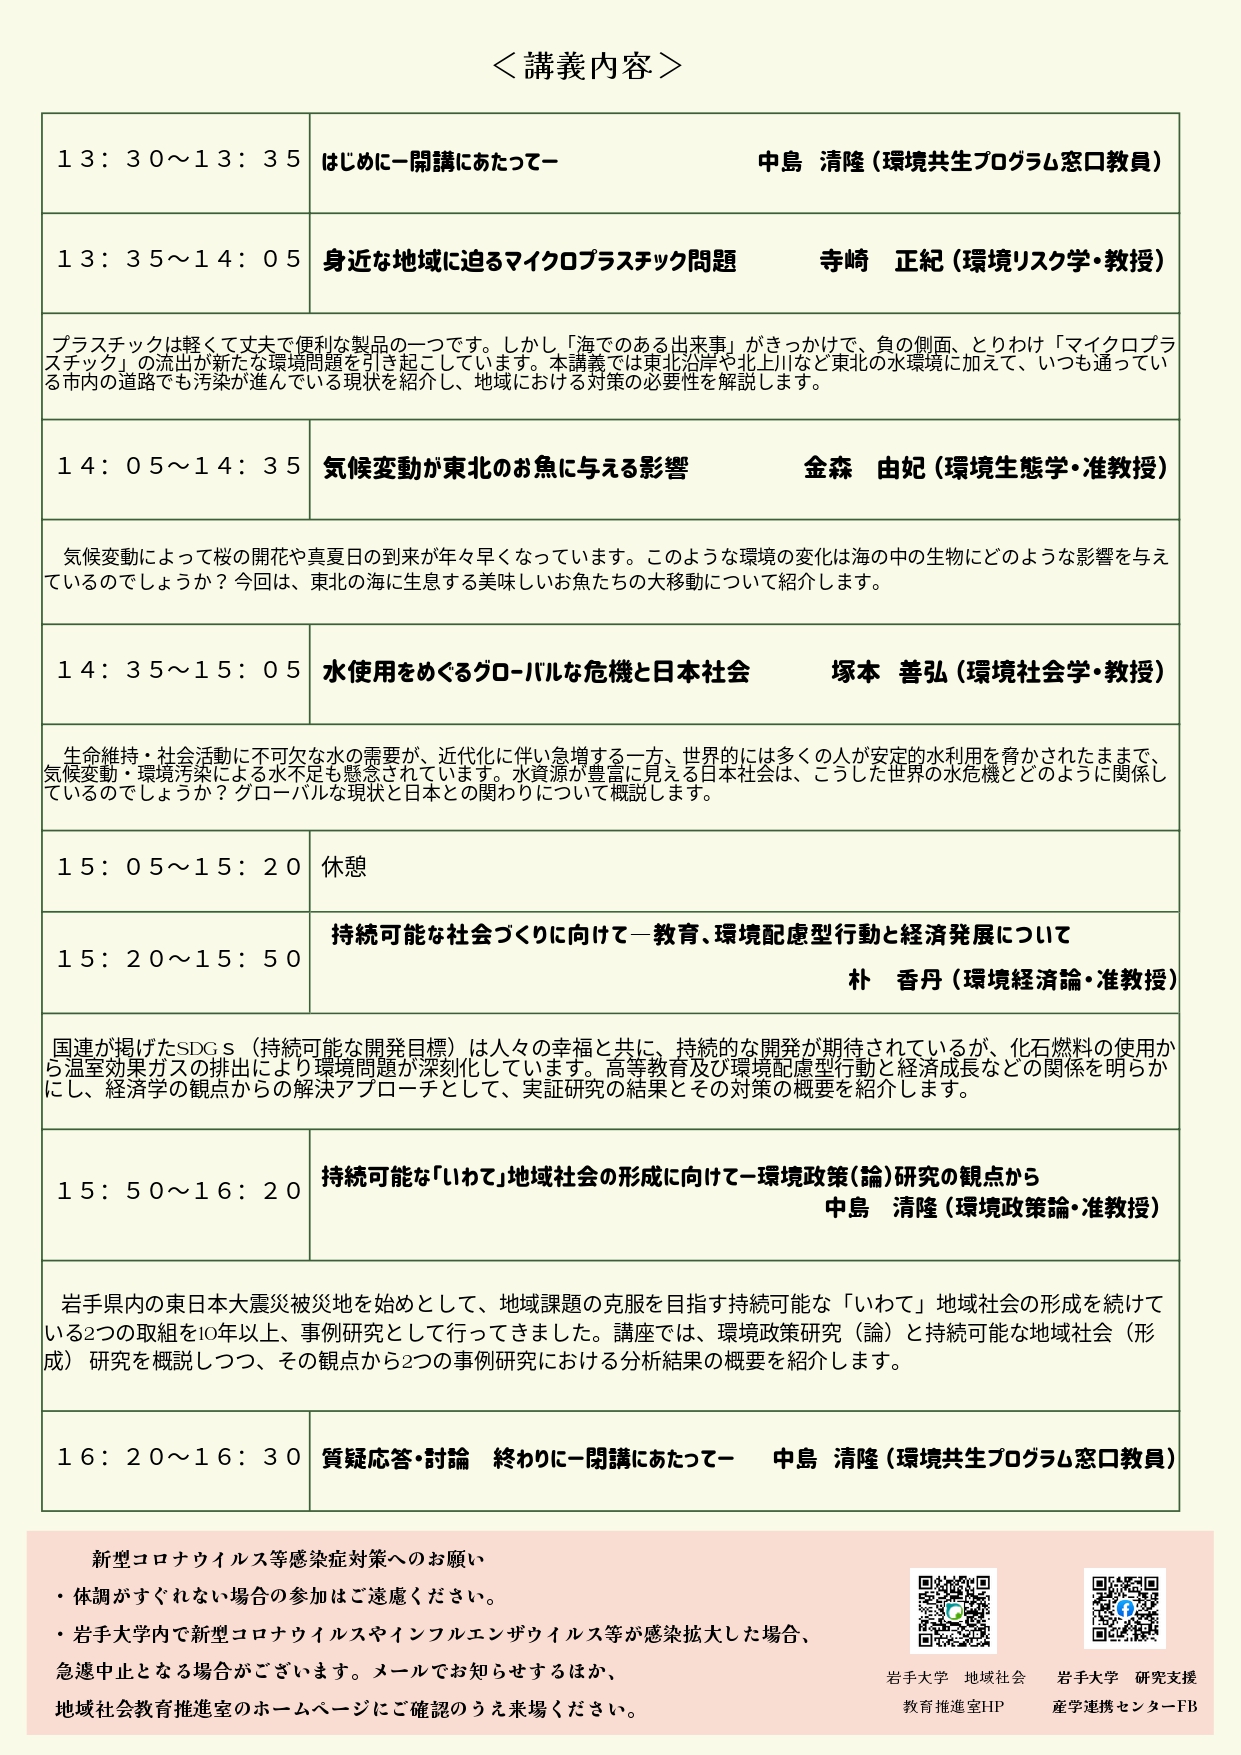 ＜講義内容＞
１３：３０～１３：３５ はじめにー開講にあたってー 中島 清隆（環境共生プログラム窓口教員）
１３：３５～１４：０５ 身近な地域に迫るマイクロプラスチック問題 寺崎　正紀（環境リスク学・教授）
プラスチックは軽くて丈夫で便利な製品の一つです。しかし「海でのある出来事」がきっかけで、負の側面、とりわけ「マイクロプラ
スチック」の流出が新たな環境問題を引き起こしています。本講義では東北沿岸や北上川など東北の水環境に加えて、いつも通ってい
る市内の道路でも汚染が進んでいる現状を紹介し、地域における対策の必要性を解説します。
１４：０５～１４：３５ 気候変動が東北のお魚に与える影響 金森　由妃（環境生態学・准教授）
気候変動によって桜の開花や真夏日の到来が年々早くなっています。このような環境の変化は海の中の生物にどのような影響を与え
ているのでしょうか？今回は、東北の海に生息する美味しいお魚たちの大移動について紹介します。
１４：３５～１５：０５ 水使用をめぐるグローバルな危機と日本社会 塚本 善弘（環境社会学・教授）
生命維持・社会活動に不可欠な水の需要が、近代化に伴い急増する一方、世界的には多くの人が安定的水利用を脅かされたままで、
気候変動・環境汚染による水不足も懸念されています。水資源が豊富に見える日本社会は、こうした世界の水危機とどのように関係し
ているのでしょうか？グローバルな現状と日本との関わりについて概説します。
１５：０５～１５：２０ 休憩
１５：２０～１５：５０ 持続可能な社会づくりに向けて―教育、環境配慮型行動と経済発展について
朴　香丹（環境経済論・准教授）
国連が掲げたSDGｓ（持続可能な開発目標）は人々の幸福と共に、持続的な開発が期待されているが、化石燃料の使用か
ら温室効果ガスの排出により環境問題が深刻化しています。高等教育及び環境配慮型行動と経済成長などの関係を明らか
にし、経済学の観点からの解決アプローチとして、実証研究の結果とその対策の概要を紹介します。
１５：５０～１６：２０ 持続可能な「いわて」地域社会の形成に向けてー環境政策（論）研究の観点から
中島　清隆（環境政策論・准教授）
岩手県内の東日本大震災被災地を始めとして、地域課題の克服を目指す持続可能な「いわて」地域社会の形成を続けて
いる2つの取組を10年以上、事例研究として行ってきました。講座では、環境政策研究（論）と持続可能な地域社会（形
成） 研究を概説しつつ、その観点から2つの事例研究における分析結果の概要を紹介します。
１６：２０～１６：３０ 質疑応答・討論　終わりにー閉講にあたってー 中島 清隆（環境共生プログラム窓口教員）
新型コロナウイルス等感染症対策へのお願い
・体調がすぐれない場合の参加はご遠慮ください。
・岩手大学内で新型コロナウイルスやインフルエンザウイルス等が感染拡大した場合、
急遽中止となる場合がございます。メールでお知らせするほか、
地域社会教育推進室のホームページにご確認のうえ来場ください。
岩手大学　地域社会
教育推進室HP
岩手大学　研究支援
産学連携センターFB